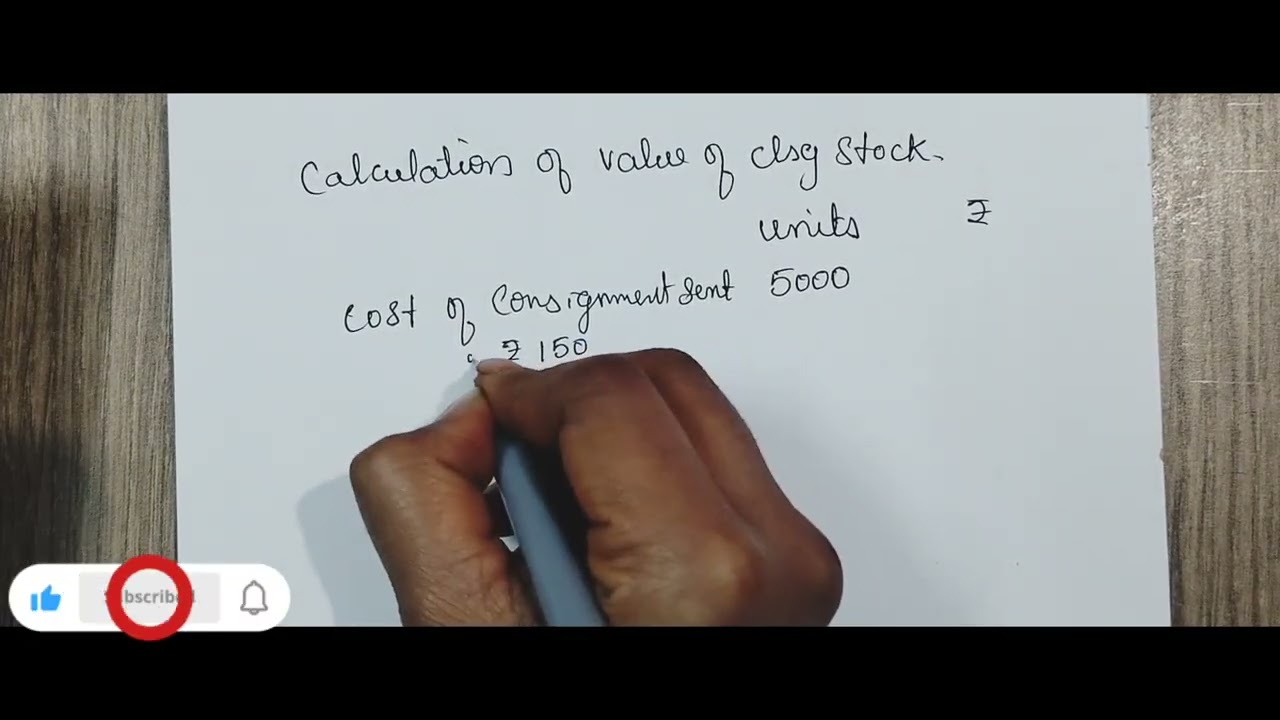 Calculation of value of clsg stock.
units ₹
Cost of Consignment sent 5000
₹ 150